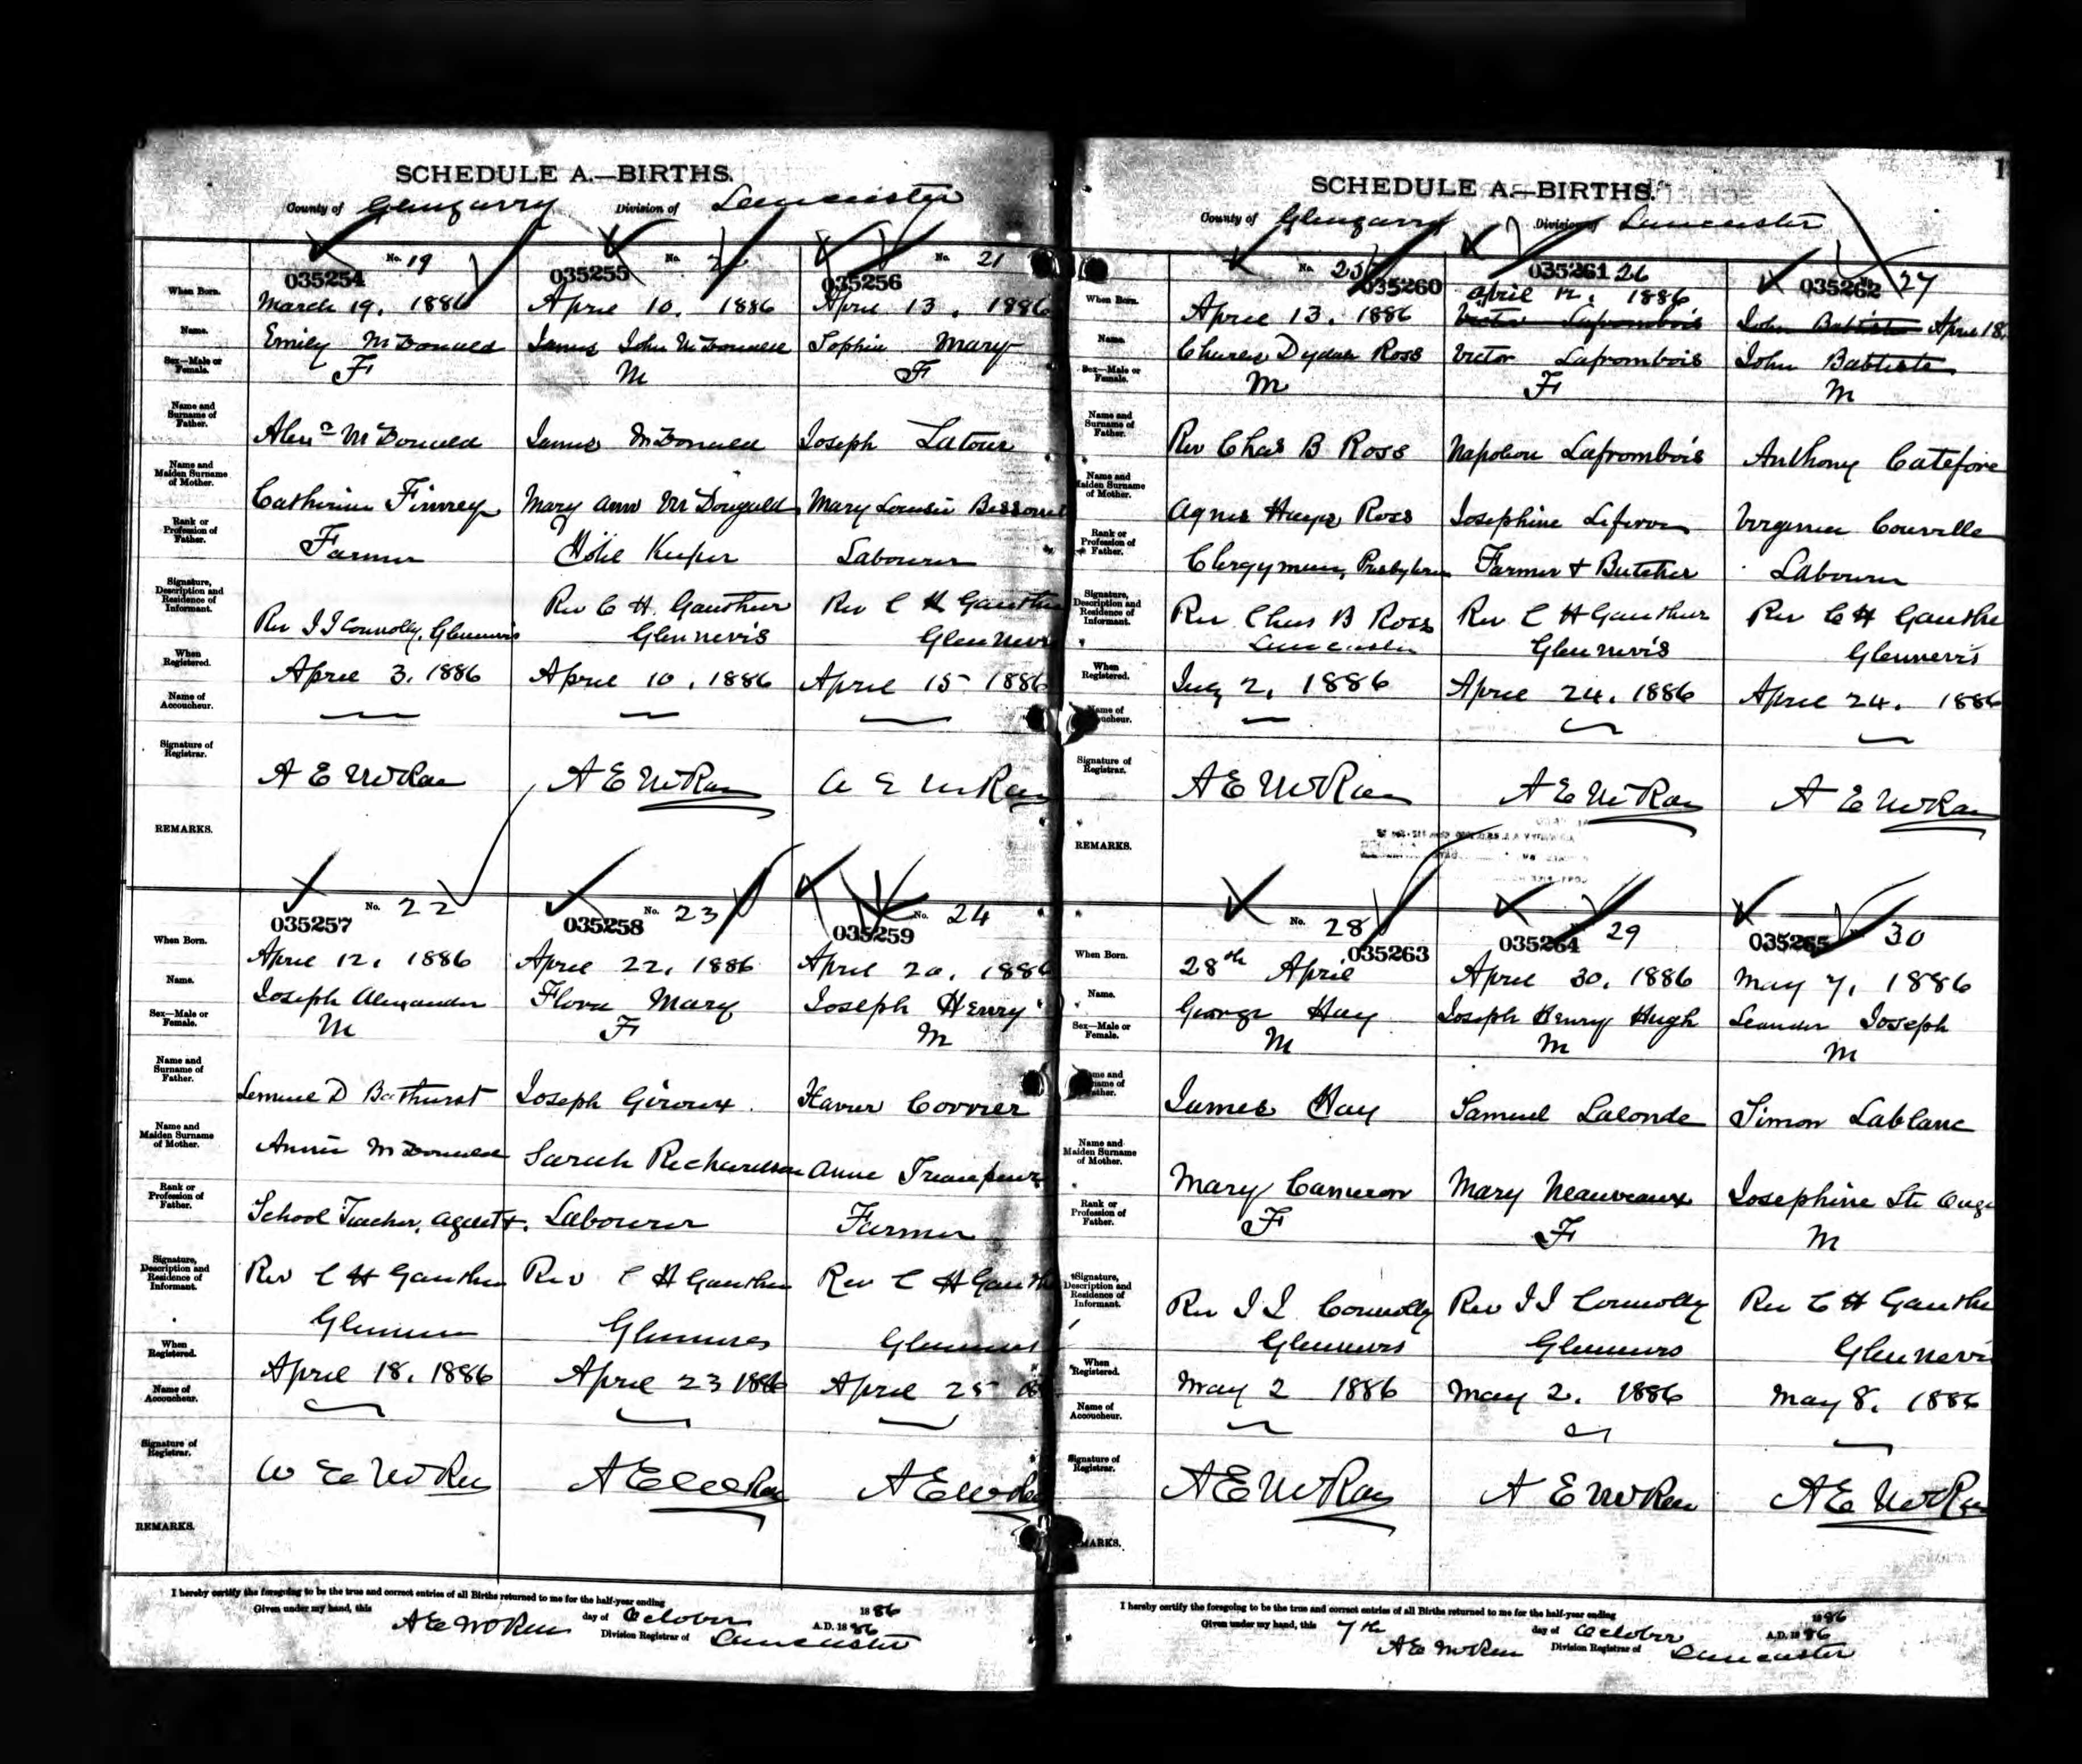 SCHEDULE A.—BIRTHS.
County of Glengarry Division of Lancaster
No. 19 No. No. 21
035254 035255 035256
When Born. March 19, 1886 April 10, 1886 April 13, 1886
Name. Emily McDonald James John McDonald Sophia Mary
Sex—Male or Female. F M F
Name and Surname of Father. Alexr McDonald James McDonald Joseph Latour
Name and Maiden Surname of Mother. Catherine Mary Ann McDougald Mary Louisie
Rank or Profession of Father. Farmer Keeper Labourer
Signature, Description and Residence of Informant. Rev J J Connolly, Glennevis Rev C H Gauthier Rev C H
Glennevis
When Registered. April 3, 1886 April 10, 1886 April 15 1886
Name of Accoucheur.
Signature of Registrar. A E McRae A E McRae A E McRae
REMARKS.
No. 22 No. 23 No. 24
035257 035258 035259
When Born. April 12, 1886 April 22, 1886 April 20, 1886
Name. Joseph Alexander Flora Mary Joseph Henry
Sex—Male or Female. M F M
Name and Surname of Father. D Bathurst Joseph Giroux
Name and Maiden Surname of Mother. Annie McDonald Sarah Richardson Anne
Rank or Profession of Father. School Teacher, agent &. Labourer Farmer
Signature, Description and Residence of Informant. Rev C H Gauthier Rev C H Gauthier Rev C H
Glennevis Glennevis Glennevis
When Registered. April 18, 1886 April 23 1886 April 25
Name of Accoucheur.
Signature of Registrar. McRae A E McRae A E McRae
REMARKS.
I hereby certify the foregoing to be the true and correct entries of all Births returned to me for the half-year ending 1886
Given under my hand, this day of October A.D. 1886
A E McRae Division Registrar of Lancaster
1
SCHEDULE A.—BIRTHS.
County of Glengarry Division of Lancaster
No. 25 26 27
035260 035261 035262
When Born. April 13, 1886 April 12, 1886 John Batiste April 18,
Victor Lafrombois
Name. Ross Victor Lafrombois John Babtiste
Sex—Male or Female. M F M
Name and Surname of Father. Rev Chas B Ross Napoleon Lafrombois Anthony
Name and Maiden Surname of Mother. Agnes Ross Josephine Virginia Couville
Rank or Profession of Father. Clergyman, Farmer & Butcher Labourer
Signature, Description and Residence of Informant. Rev Chas B Ross Rev C H Gauthier Rev C H
Lancaster Glennevis Glennevis
When Registered. 2, 1886 April 24, 1886 April 24, 1886
Name of Accoucheur.
Signature of Registrar. A E McRae A E McRae A E McRae
REMARKS.
No. 28 29 30
035263 035264 035265
When Born. 28th April April 30, 1886 May 7, 1886
Name. George Hay Joseph Henry Hugh Leander Joseph
Sex—Male or Female. M M M
Name and Surname of Father. James Hay Samuel Lalonde Simon Lablanc
Name and Maiden Surname of Mother. Mary Cameron Mary Josephine St
Rank or Profession of Father. F F M
Signature, Description and Residence of Informant. Rev J J Connolly Rev J J Connolly Rev C H
Glennevis Glennevis Glennevis
When Registered. May 2 1886 May 2, 1886 May 8, 1886
Name of Accoucheur.
Signature of Registrar. A E McRae A E McRae A E McRae
I hereby certify the foregoing to be the true and correct entries of all Births returned to me for the half-year ending 1886
Given under my hand, this 7th day of October A.D. 1886
A E McRae Division Registrar of Lancaster